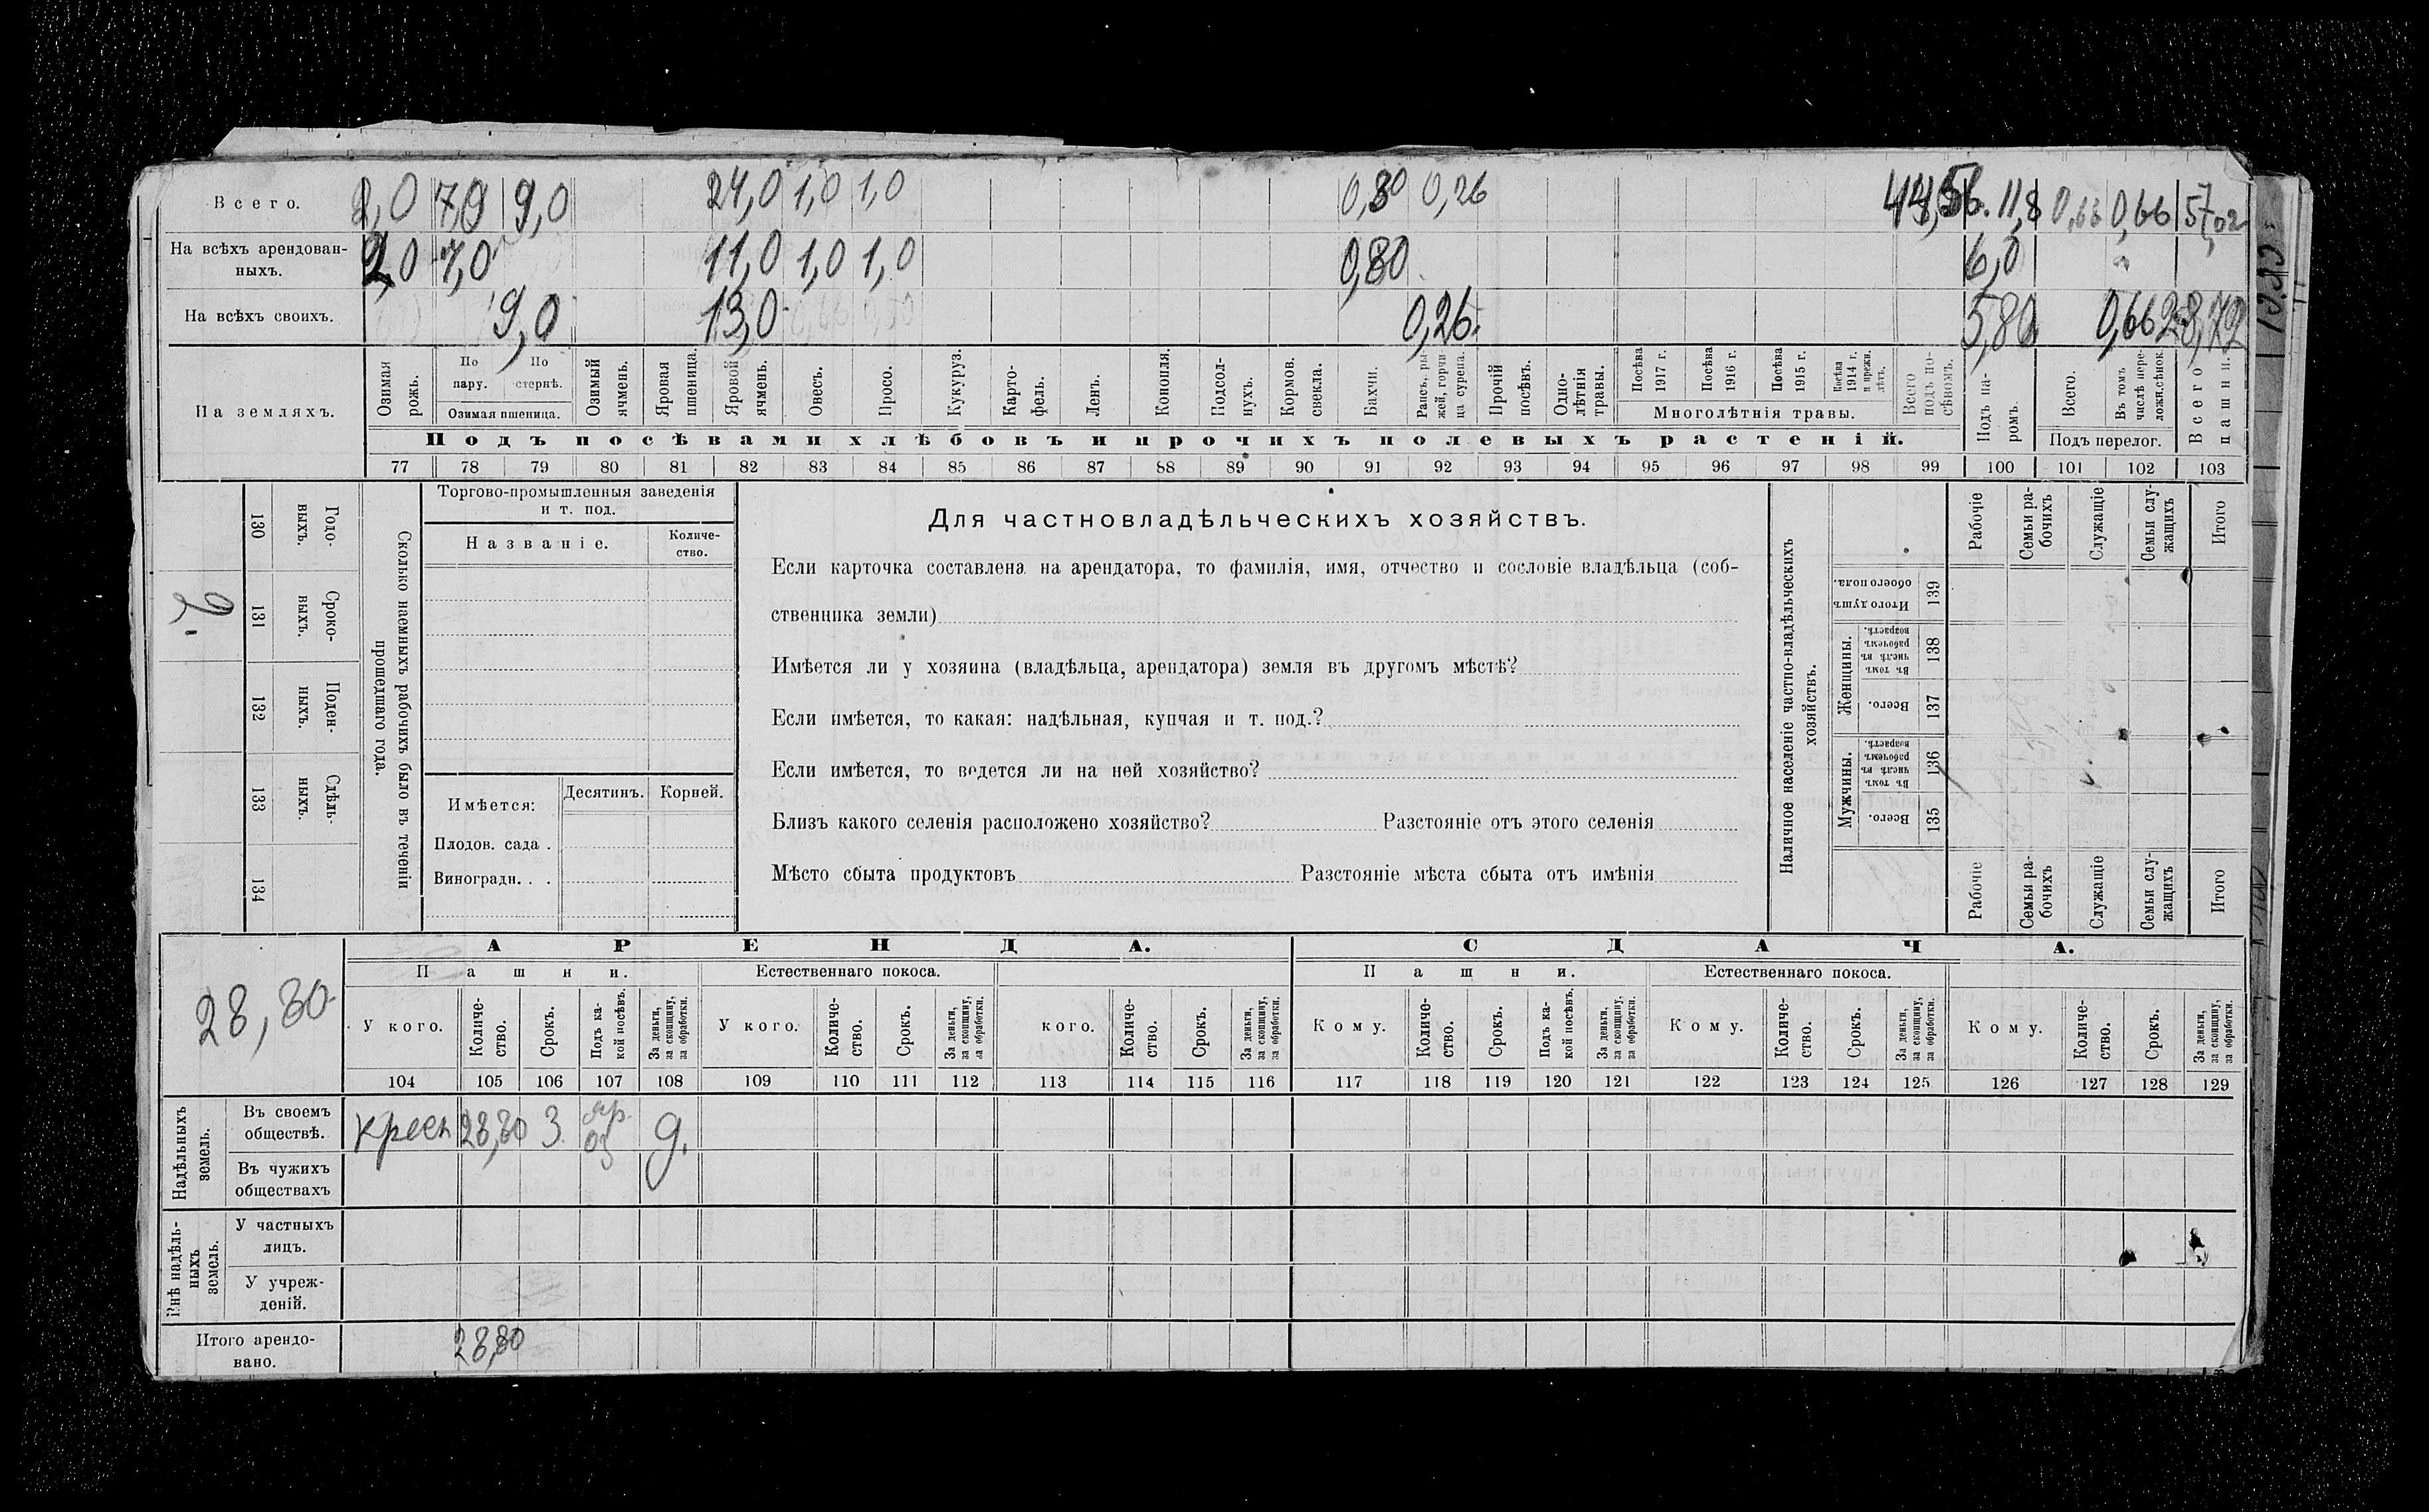 Всего. 2,0 7,0 9,0 24,0 1,0 1,0 0,80 0,26 44,56. 11,8 0,66 0,66 57,02
На всѣхъ арендован-
ныхъ. 2,0 7,0 11,0 1,0 1,0 0,80 6,0
На всѣхъ своихъ. 9,0 13,0 0,26. 5,80 0,66 28,72
На земляхъ.
Озимая рожь.
По пару.
По стернѣ.
Озимая пшеница.
Озимый ячмень.
Яровая пшеница.
Яровой ячмень.
Овесъ.
Просо.
Кукуруз.
Карто-
фель.
Ленъ.
Конопля.
Подсол-
нухъ.
Кормов.
свекла.
Бахчи.
Рапсъ, ры-
жей, горчи-
ца сурепа.
Прочій
посѣвъ.
Одно-
лѣтнія
травы.
Посѣва
1917 г.
Посѣва
1916 г.
Посѣва
1915 г.
Посѣва
1914 г.
и прежн.
лѣтъ.
Многолѣтнія травы.
Всего
подъ по-
сѣвомъ.
Подъ па-
ромъ.
Всего.
Въ томъ
числѣ пере-
ложн.сѣнок.
Подъ перелог.
Всего
пашни.
Подъ посѣвами хлѣбовъ и прочихъ полевыхъ растеній.
77 78 79 80 81 82 83 84 85 86 87 88 89 90 91 92 93 94 95 96 97 98 99 100 101 102 103
2.
130 131 132 133 134
Годо-
выхъ.
Сроко-
выхъ.
Поден-
ныхъ.
Сдѣль-
ныхъ.
Сколько наемныхъ рабочихъ было въ теченіи
прошедшаго года.
Торгово-промышленныя заведенія
и т. под.
Названіе.
Количе-
ство.
Имѣется:
Десятинъ.
Корней.
Плодов. сада .
Виноградн. . .
Для частновладѣльческихъ хозяйствъ.
Если карточка составлена на арендатора, то фамилія, имя, отчество и сословіе владѣльца (соб-
ственника земли)
Имѣется ли у хозяина (владѣльца, арендатора) земля въ другомъ мѣстѣ?
Если имѣется, то какая: надѣльная, купчая и т. под.?
Если имѣется, то ведется ли на ней хозяйство?
Близъ какого селенія расположено хозяйство? Разстояніе отъ этого селенія
Мѣсто сбыта продуктовъ Разстояніе мѣста сбыта отъ имѣнія
Наличное населеніе частно-владѣльческихъ
хозяйствъ.
Рабочіе
Семьи ра-
бочихъ
Служащіе
Семьи слу-
жащихъ
Итого
Итого душъ
обоего пола.
139
Женщины.
Въ томъ
числѣ въ
рабочемъ
возрастѣ.
138
Всего.
137
Мужчины.
Въ томъ
числѣ въ
рабочемъ
возрастѣ.
136
Всего.
135
Рабочіе
Семьи ра-
бочихъ
Служащіе
Семьи слу-
жащихъ
Итого
28,80
АРЕНДА.
СДАЧА.
Пашни.
Естественнаго покоса.
Пашни.
Естественнаго покоса.
У кого.
Количе-
ство.
Срокъ.
Подъ ка-
кой посѣвъ.
За деньги,
за скопщину,
за обработки.
У кого.
Количе-
ство.
Срокъ.
За деньги,
за скопщину,
за обработки.
кого.
Количе-
ство.
Срокъ.
За деньги,
за скопщину,
за обработки.
Кому.
Количе-
ство.
Срокъ.
Подъ ка-
кой посѣвъ.
За деньги,
за скопщину,
за обработки.
Кому.
Количе-
ство.
Срокъ.
За деньги,
за скопщину,
за обработки.
Кому.
Количе-
ство.
Срокъ.
За деньги,
за скопщину,
за обработки.
104 105 106 107 108 109 110 111 112 113 114 115 116 117 118 119 120 121 122 123 124 125 126 127 128 129
Надѣльныхъ
земель.
Въ своемъ
обществѣ.
крест 28,80 3 яр. оз д.
Въ чужихъ
обществахъ
Внѣ надѣль-
ныхъ
земель.
У частныхъ
лицъ.
У учреж-
деній.
Итого арендо-
вано. 28,80